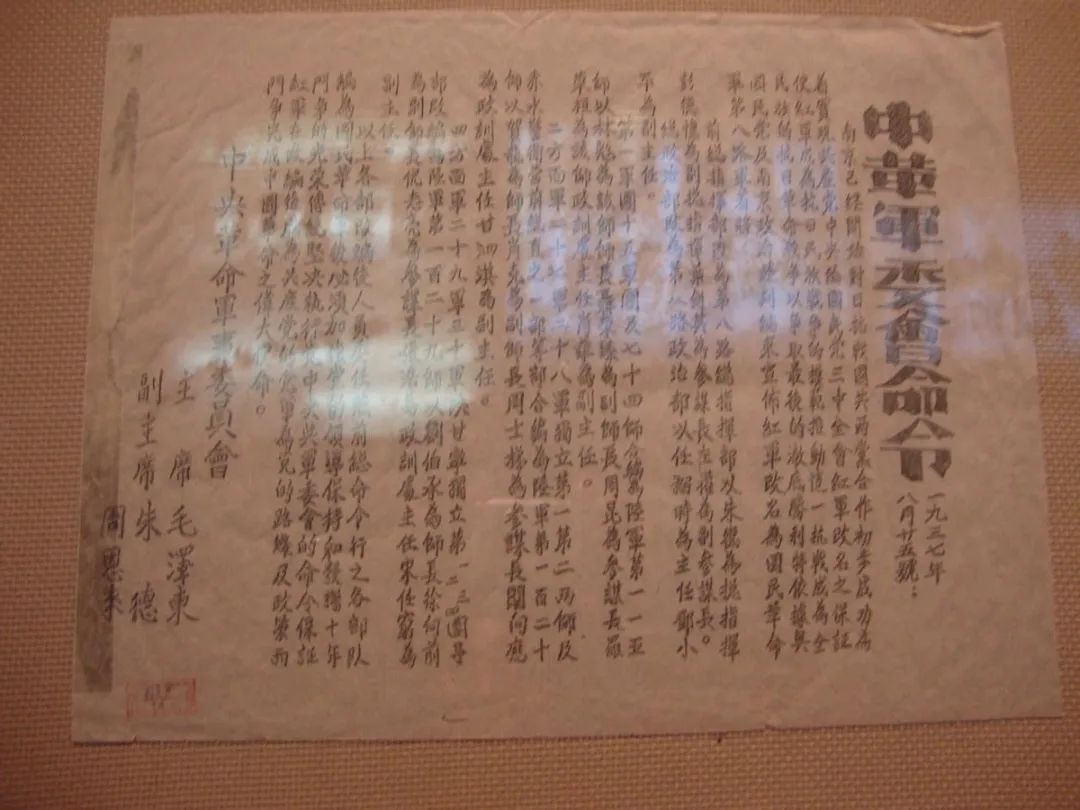 中華軍委会命令
一九三七年
八月廿五號：
南京已經開始對日抗戰國共兩黨合作初步成功為
着實現共產黨中央給國民黨三中全會紅軍改名之保証
使紅軍成為抗日民族戰爭的模範推動這一抗戰成為全
民族的抗日革命戰爭以爭取最後的澈底勝利特依據與
國民黨及南京政府談判結果宣佈紅軍改名為國民革命
軍第八路軍着將
前總指揮部改為第八路總指揮部以朱德為總指揮
彭德懷為副總指揮葉劍英為參謀長左權為副參謀長。
總政治部改為第八路政治部以任弼時為主任鄧小
平為副主任。
第一軍團十五軍團及七十四師合編為陸軍第一一五
師以林彪為該師師長聶榮臻為副師長周昆為參謀長羅
榮桓為該師政訓處主任肖華為副主任。
二方面軍二十七軍二十八軍獨立第一第二兩師及
赤水警衛營前總直之一部等部合編為陸軍第一百二十
師以賀龍為師長肖克為副師長周士梯為參謀長關向應
為政訓處主任甘泗淇為副主任。
四方面軍二十九軍三十軍陝甘寧獨立第一二三四團等
部改編為陸軍第一百二十九師以劉伯承為師長徐向前
為副師長倪志亮為參謀長張浩為政訓處主任宋任窮為
副主任。
以上各部改編後人員委任照前總命令行之各部隊
編為國民革命軍後必須加強黨的領導保持和發揚十年
鬥爭的光榮傳統堅決執行党中央與軍委會的命令保証
紅軍在改編後成為共產党的党軍為党的路綫及政策而
鬥爭完成中國革命之偉大使命。
中共革命軍事委員會
主席 毛澤東
副主席 朱德
周恩來